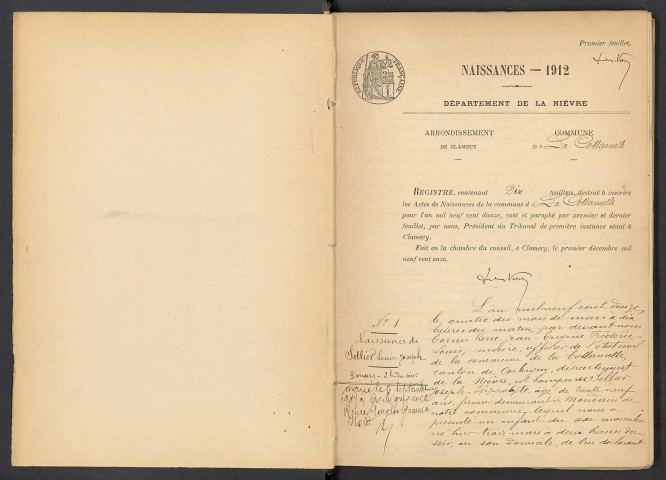 Premier feuillet.
RÉPUBLIQUE FRANÇAISE
NAISSANCES — 1912
DÉPARTEMENT DE LA NIÈVRE
ARRONDISSEMENT
DE CLAMECY
COMMUNE
de La Collancelle
REGISTRE, contenant Dix feuillets, destiné à inscrire
les Actes de Naissances de la commune d e La Collancelle
pour l'an mil neuf cent douze, coté et paraphé par premier et dernier
feuillet, par nous, Président du Tribunal de première instance séant à
Clamecy.
Fait en la chambre du conseil, à Clamecy, le premier décembre mil
neuf cent onze.
N° 1
Naissance de
Sellier Louis Joseph
3 mars - 2 h. du soir
L'an mil neuf cent douze,
le quatre du mois de mars à dix
heures du matin, par devant nous
Jean Eugène Frédéric
Louis, maire, officier de l'état civil
de la commune de la Collancelle,
canton de Corbigny, département
de la Nièvre, est comparu Sellier
Joseph Hippolyte, âgé de trente neuf
ans, fermier demeurant à
notre commune, lequel nous a
présenté un enfant du sexe masculin
né hier trois mars à deux heures du
soir, en son domicile, de lui déclarant